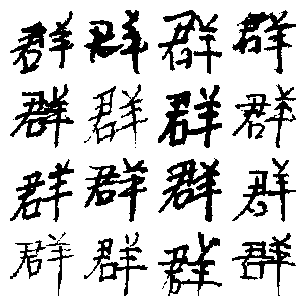 群群群群
群群群群
群群群群
群群群群